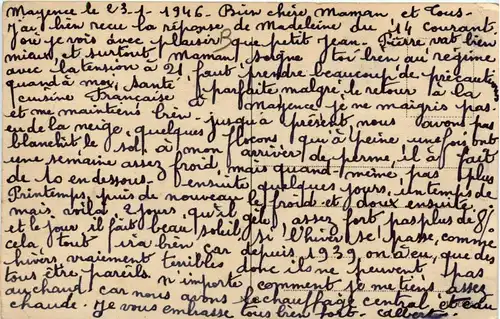 Mayence le 23-1-1946. Bien chère Maman et Tous
J'ai bien reçu la réponse de Madeleine du 14 Courant,
où je vois avec plaisir que petit Jean-Pierre vat bien
mieux, et surtout Maman, soigne toi bien au régime
avec la tension à 21, faut prendre beaucoup de précautions
quand à moi, santé parfaite malgré le retour à la
cuisine Française à Mayence je ne maigris pas.
et me maintiens bien. jusqu'à présent nous avons pas
eu de la neige, quelques flocons qu'à peine une fois ont
blanchit le sol, à mon arrivée de perme, il à fait
une semaine assez froid, mais quand même pas plus
de 10 en dessous. ensuite quelques jours, un temps de
Printemps, puis de nouveau le froid et doux ensuite,
mais voilà 2 jours, qu'il gèle assez fort pas plus de 8°
et le jour il fait beau soleil, si l'hiver se passe, comme
cela, tout ira bien car depuis 1939, on à eu, que des
hivers vraiment terribles donc ils ne peuvent pas
tous être pareils. n'importe comment je me tiens assez
au chaud car nous avons le chauffage central, et eau
chaude. Je vous embrasse tous bien fort. Albert